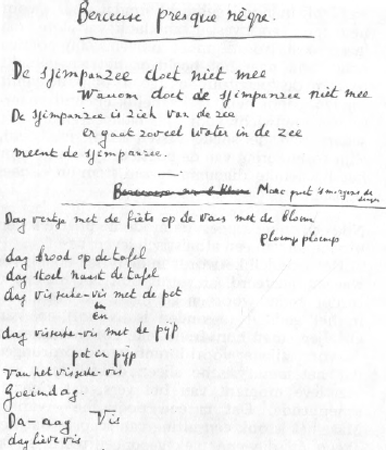 Berceuse presque nègre.
De sjimpanzee doet niet mee
Waarom doet de sjimpanzee niet mee
De sjimpanzee is ziek van de zee
er gaat zoveel water in de zee
meent de sjimpanzee.
Marc groet 's morgens de dingen
Dag ventje met de fiets op de vaas met de bloem
ploem ploem
dag brood op de tafel
dag stoel naast de tafel
dag visscke-vis met de pot
en
dag visscke-vis met de pijp
pot en pijp
van het visscke-vis
Goeiendag
Da-aag Vis
dag lieve vis